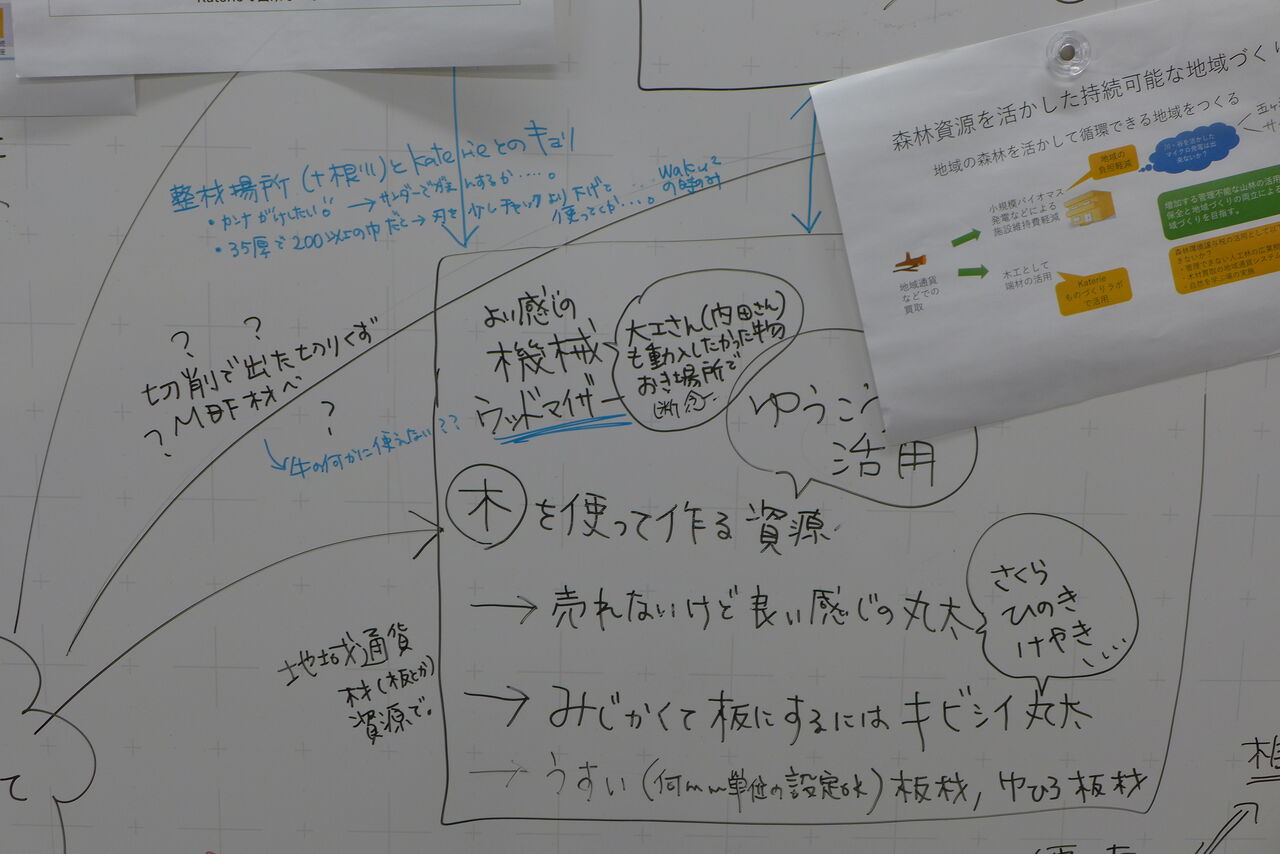 森林資源を活かした持続可能な地域づくり
地域の森林を活かして循環できる地域をつくる
地域の
負担軽減
川・谷を活かした
マイクロ発電は出
来ないか？
小規模バイオマス
発電などによる
施設維持費軽減
増加する管理不能な山林の活用
保全と地域づくりの両立によ
域づくりを目指す。
地域通貨
などでの
買取
木工として
端材の活用
Katerie
ものづくりラボ
で活用
森林環境譲与税の活用として以下
きないか？
・管理できない人工林の広葉
・木材買取の地域通貨システム
・自然を学ぶ場の実施
整材場所(十根川)とkaterieとのキョリ
・カンナがけしたい!! →サンダーでがまんするか・・・。
・35厚で200以上の巾だと→刃を少しチェックより下げて
使ってくか・・・。
waku2
の時み
? ?
切削で出た切りくず
? MDF材へ ?
牛の何かに使えない??
よい感じの
機械
ウッドマイザー
大工さん(内田さん)
も導入したかった物
おき場所で
断念
ゆうこう
活用
木を使って作る資源
→売れないけど良い感じの丸太
さくら
ひのき
けやき....
→みじかくて板にするにはキビシイ丸太
→うすい(何mm単位の設定ok)板材, 巾ひろ板材
地域通貨
材(板とか)
資源で。
て